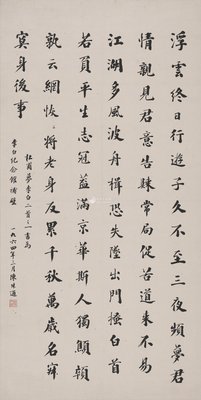 浮雲終日行遊子久不至三夜頻夢君
情親見君意告歸常局促苦道來不易
江湖多風波舟楫恐失墜出門搔白首
若負平生志冠蓋滿京華斯人獨顦顇
孰云網恢〻將老身反累千秋萬歲名寂
寞身後事
杜甫夢李白二首之一書為
李白纪念館補壁
一九六四年三月陳